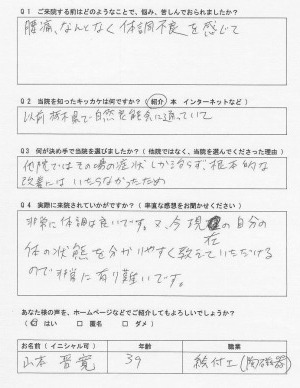 Q1 ご来院する前はどのようなことで、悩み、苦しんでおられましたか?
腰痛、なんとなく体調不良を感じて
Q2 当院を知ったキッカケは何ですか?(紹介 本 インターネットなど)
以前 栃木県で自然形体会に通っていて
Q3 何が決め手で当院を選びましたか?(他院ではなく、当院を選んでくださった理由)
他院ではその場の症状しか治らず、根本的な
改善には いたらなかったため
Q4 実際に来院されていかがですか?(率直な感想をお聞かせください)
非常に体調は良いです。又、今現在の自分の
体の状態を分かりやすく教えていただける
ので非常に有り難いです。
あなた様の声を、ホームページなどでご紹介してもよろしいでしょうか?
はい □ 匿名 □ ダメ)
お名前(イニシャル可) 年齢 職業
山本 晋寛 39 絵付工(陶磁器)